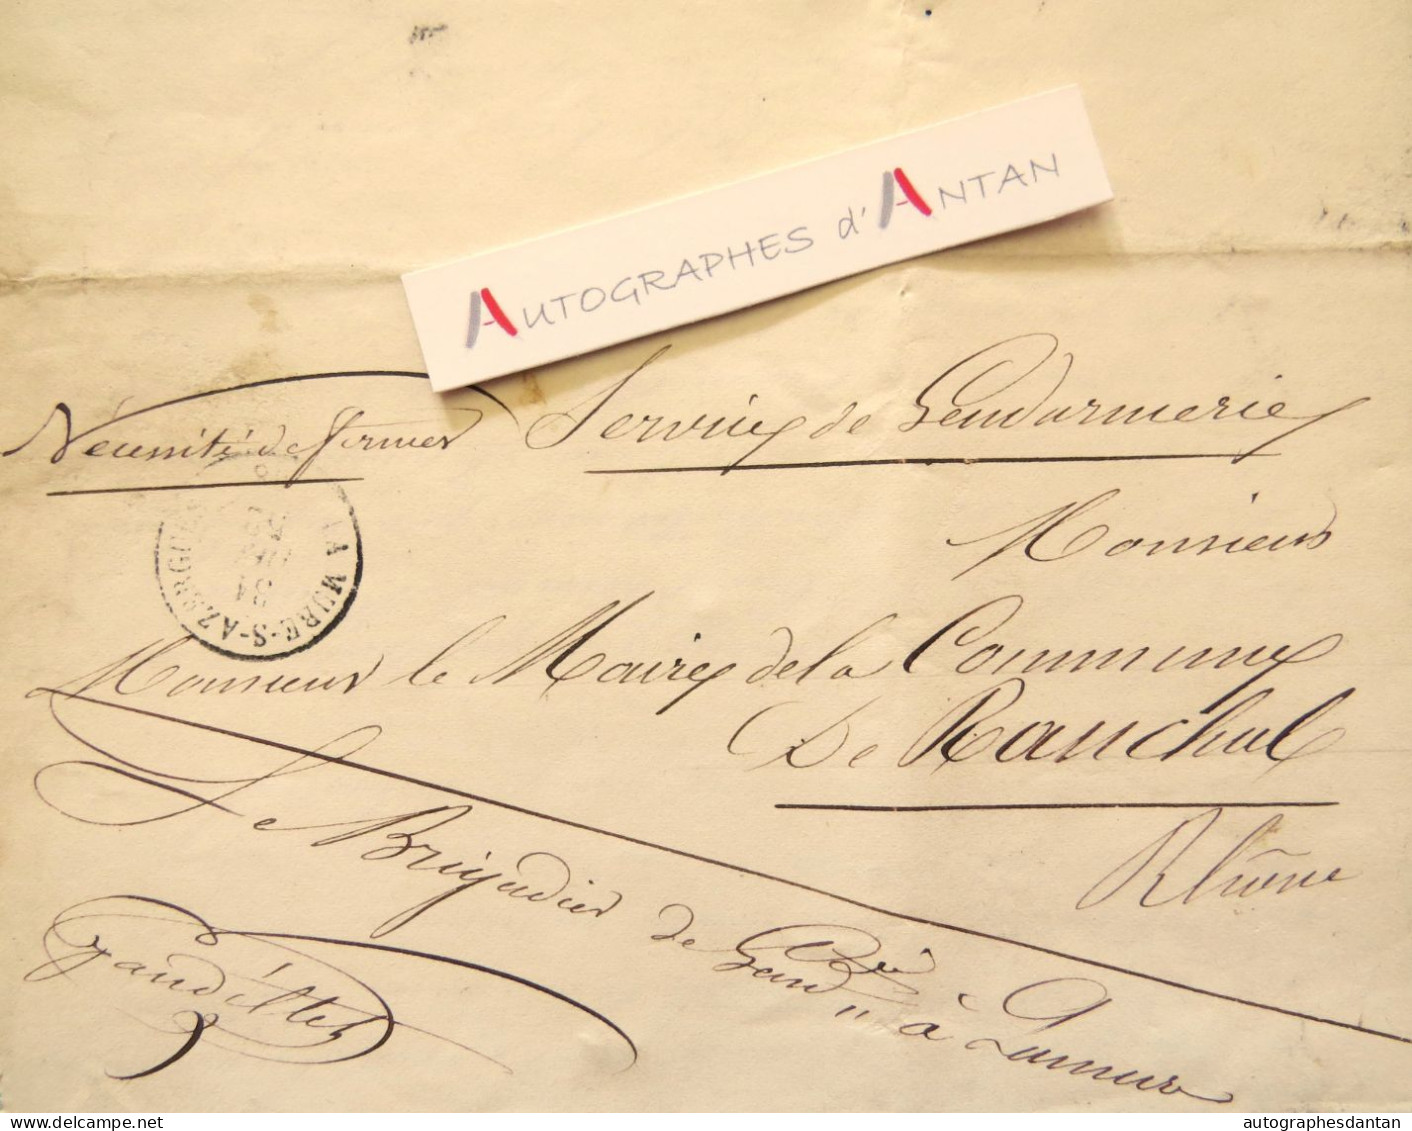 AUTOGRAPHES d'ANTAN
Nécessité de fermer
Service de Gendarmerie
LA MURE-S-AZERGUES
Monsieur
Monsieur le Maire de la Commune
De Ranchal
Rhône
Le Brigadier de Gend rie à Lamure
delcampe.net
autographesdantan